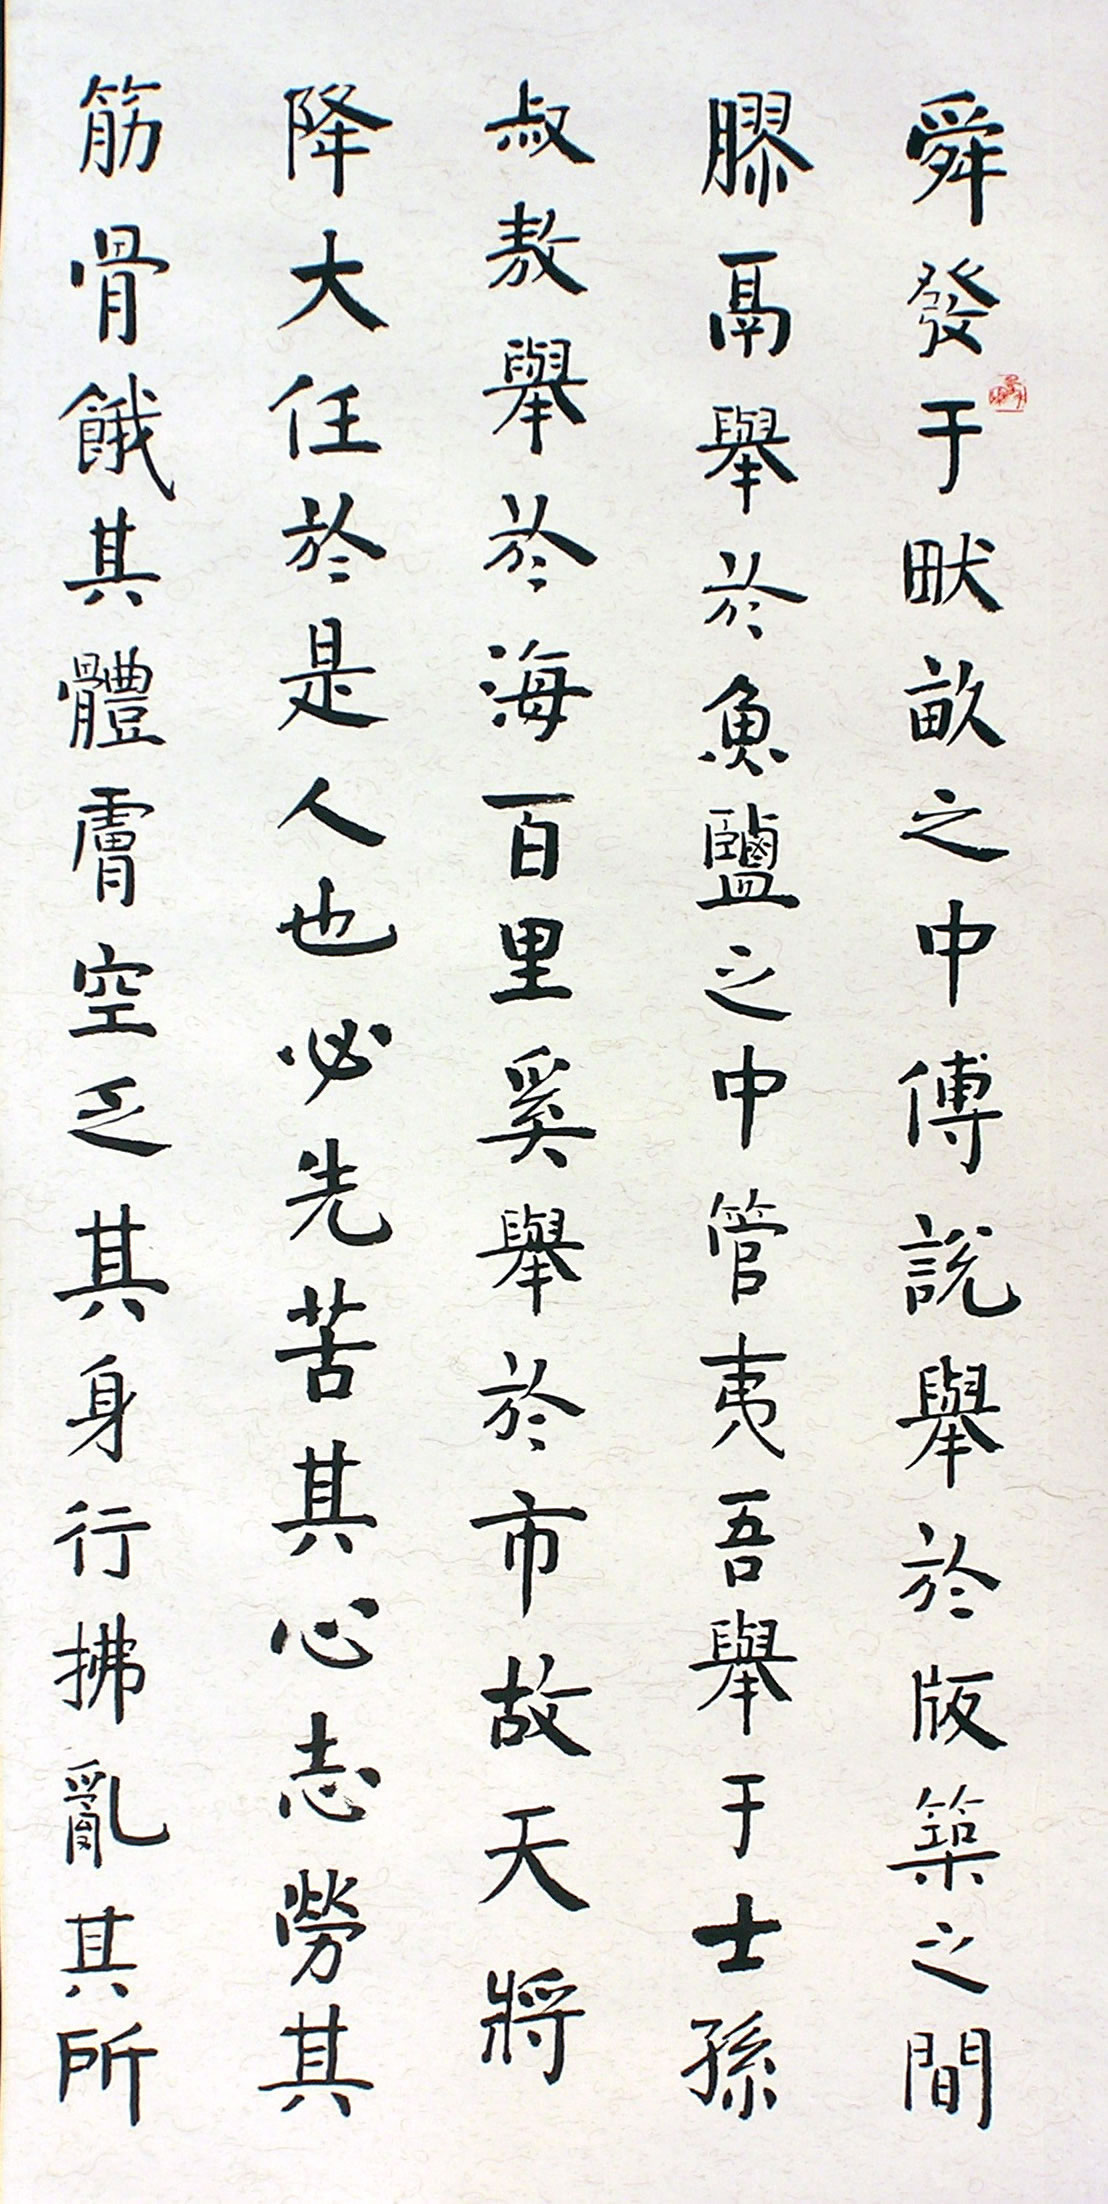 舜發于畎畝之中傅說舉於版築之間
膠鬲舉於魚鹽之中管夷吾舉于士孫
叔敖舉於海百里奚舉於市故天將
降大任於是人也必先苦其心志勞其
筋骨餓其體膚空乏其身行拂亂其所